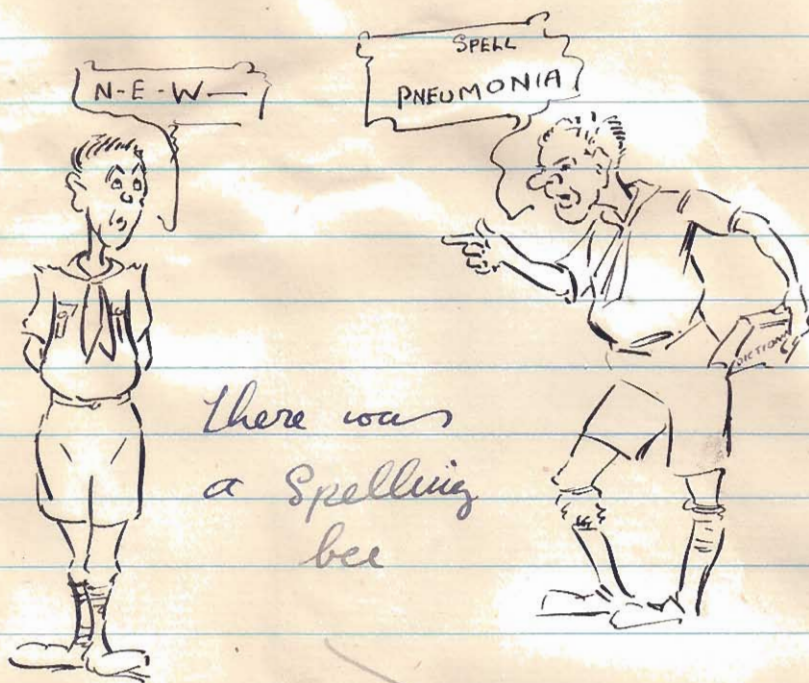 SPELL
PNEUMONIA
N-E-W—
DICTION
there was
a Spelling
bee